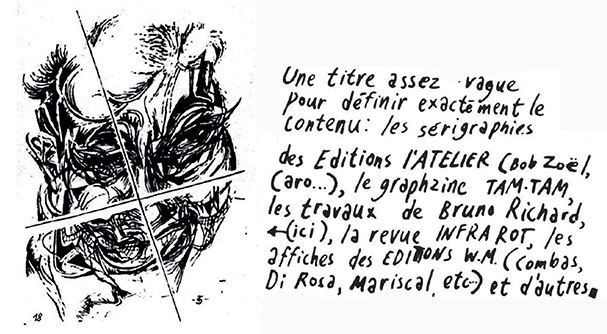 Une titre assez vague
pour définir exactement le
contenu: les sérigraphies
des Editions l'ATELIER (Bob Zoël,
Caro...), le graphzine TAM-TAM,
les travaux de Bruno Richard,
←(ici), la revue INFRAROT, les
affiches des EDITIONS W.M. (Combas,
Di Rosa, Mariscal, etc.) et d'autres.
18
-5-